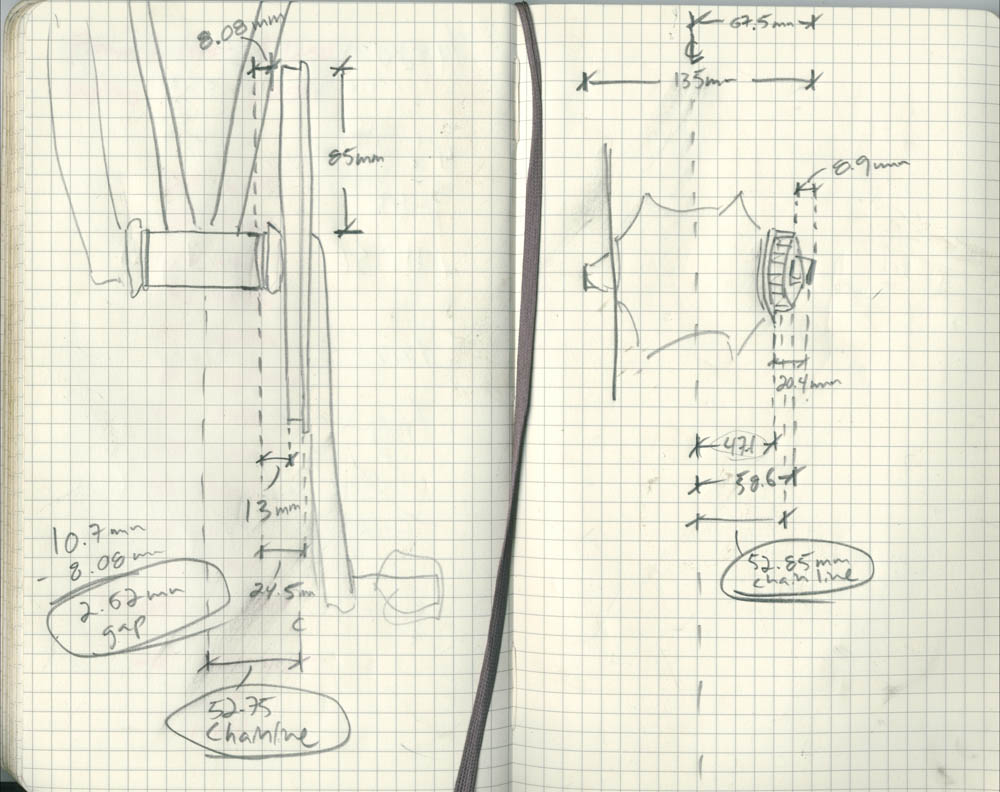 8.08mm
85mm
13mm
10.7mm
- 8.08mm
2.62mm
gap
24.5m
C
52.75
Chainline
67.5mm
℄
135mm
8.9mm
20.4mm
47.1
58.6
52.85mm
chain line